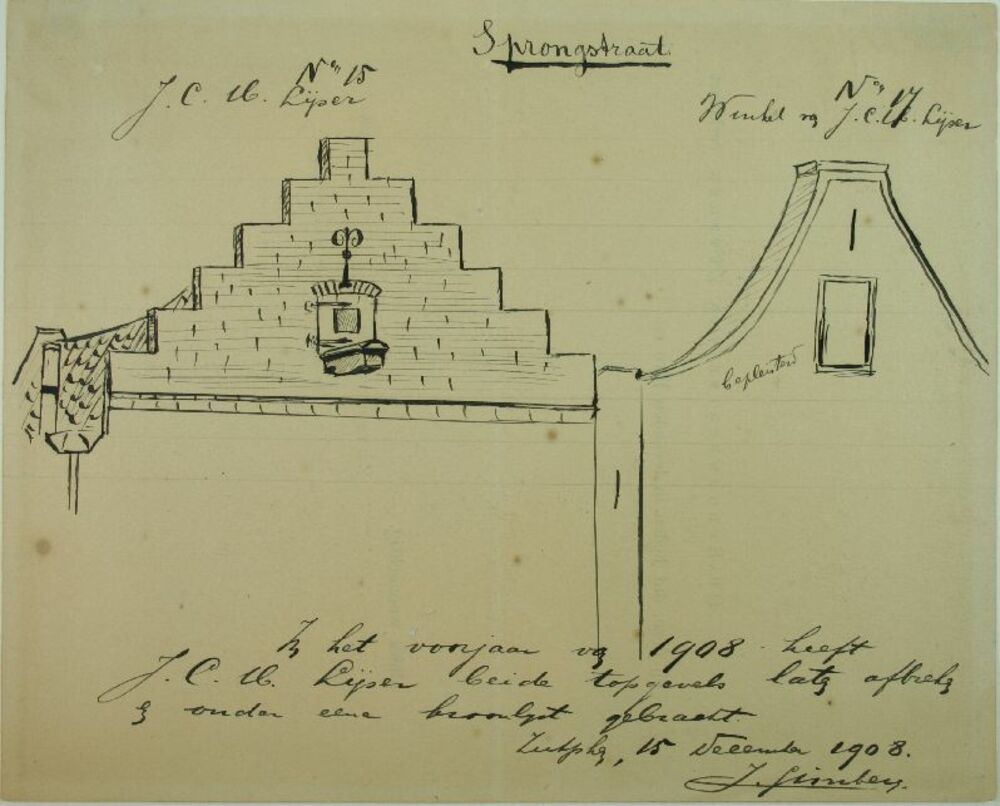 Sprongstraat.
No 15
J. C. W. Lijser
No 17
Winkel van J. C. W. Lijser
bepleisterd
In het voorjaar van 1908 heeft
J. C. W. Lijser beide topgevels laten afbreken
en onder eene kroonlijst gebracht.
Zutphen, 15 December 1908.
J. Gimberg.